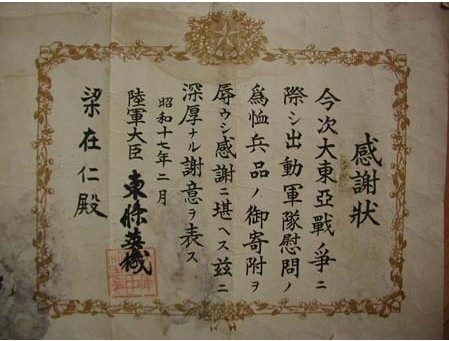 感謝狀
今次大東亞戰爭ニ
際シ出動軍隊慰問ノ
爲恤兵品ノ御寄附ヲ
辱ウシ感謝ニ堪ヘス玆ニ
深厚ナル謝意ヲ表ス
昭和十七年二月
陸軍大臣 東條英機
梁在仁殿